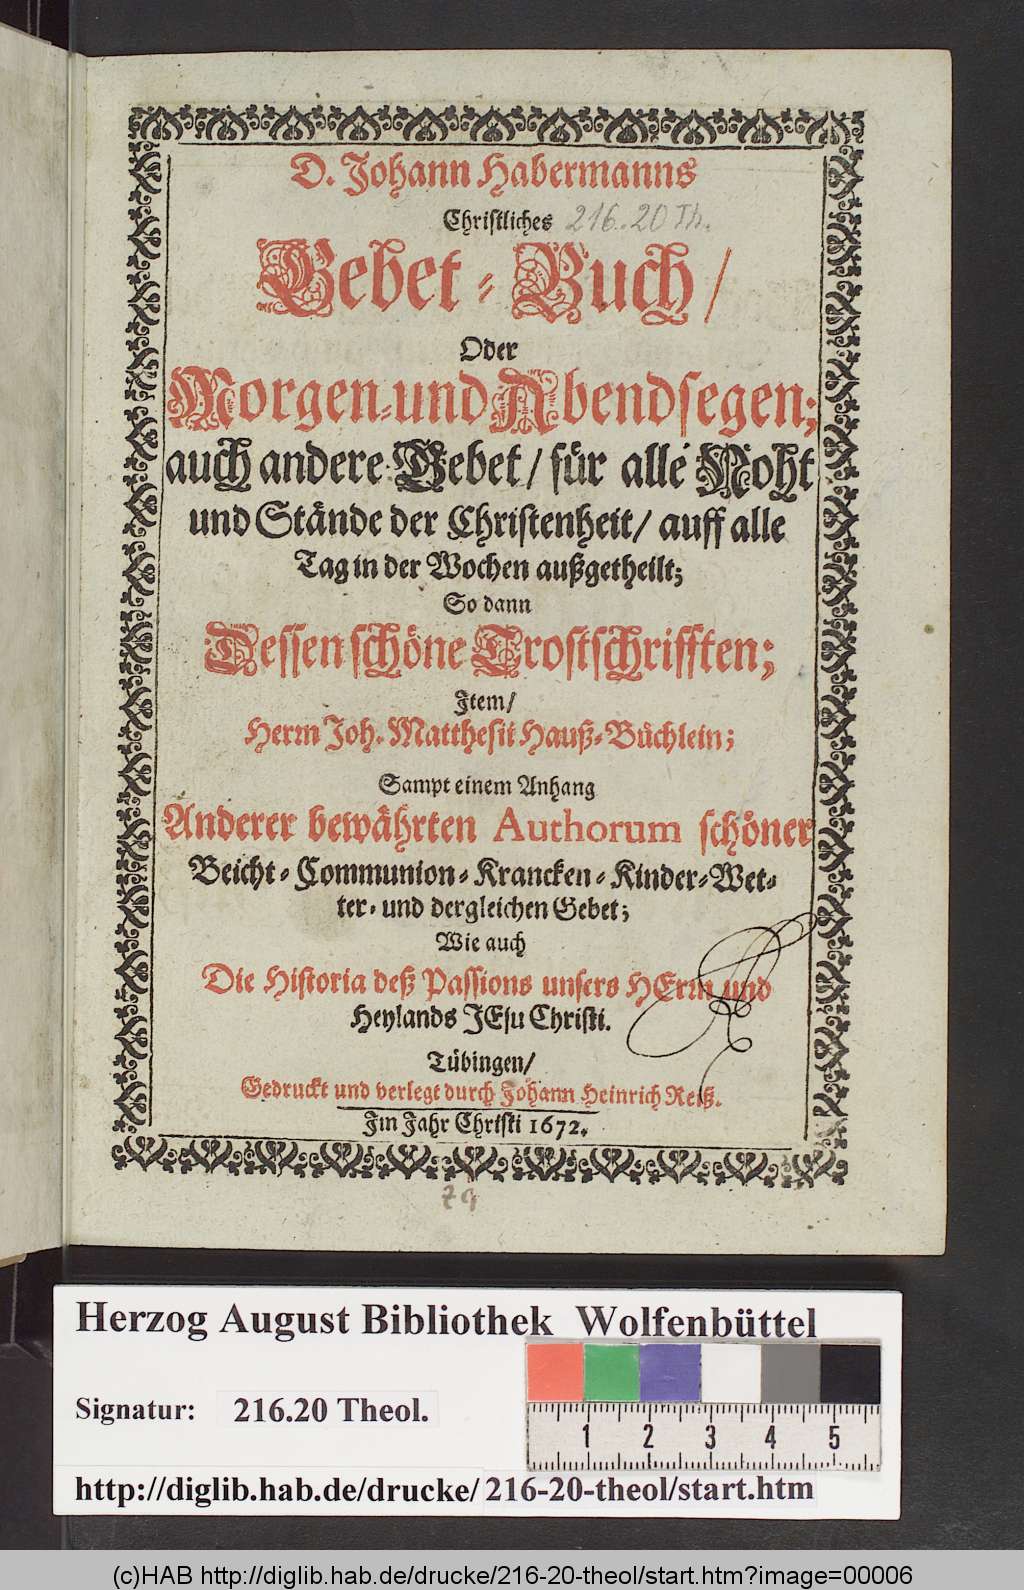 D. Johann Habermanns
Christliches 216. 20 Th.
Gebet-Buch/
Oder
Morgen-und Abendsegen;
auch andere Gebet/ für alle Noht
und Stände der Christenheit/ auff alle
Tag in der Wochen außgetheilt;
So dann
Dessen schöne Trostschrifften;
Item/
Herrn Joh. Matthesii Hauß-Büchlein;
Sampt einem Anhang
Anderer bewährten Authorum schöner
Beicht-Communion-Krancken-Kinder-Wet-
ter-und dergleichen Gebet;
Wie auch
Die Historia deß Passions unsers HErrn und
Heylands JEsu Christi.
Tübingen/
Gedruckt und verlegt durch Johann Heinrich Reiß.
Im Jahr Christi 1672.
79
Herzog August Bibliothek Wolfenbüttel
Signatur: 216.20 Theol.
1 2 3 4 5
http://diglib.hab.de/drucke/216-20-theol/start.htm
(c)HAB http://diglib.hab.de/drucke/216-20-theol/start.htm?image=00006